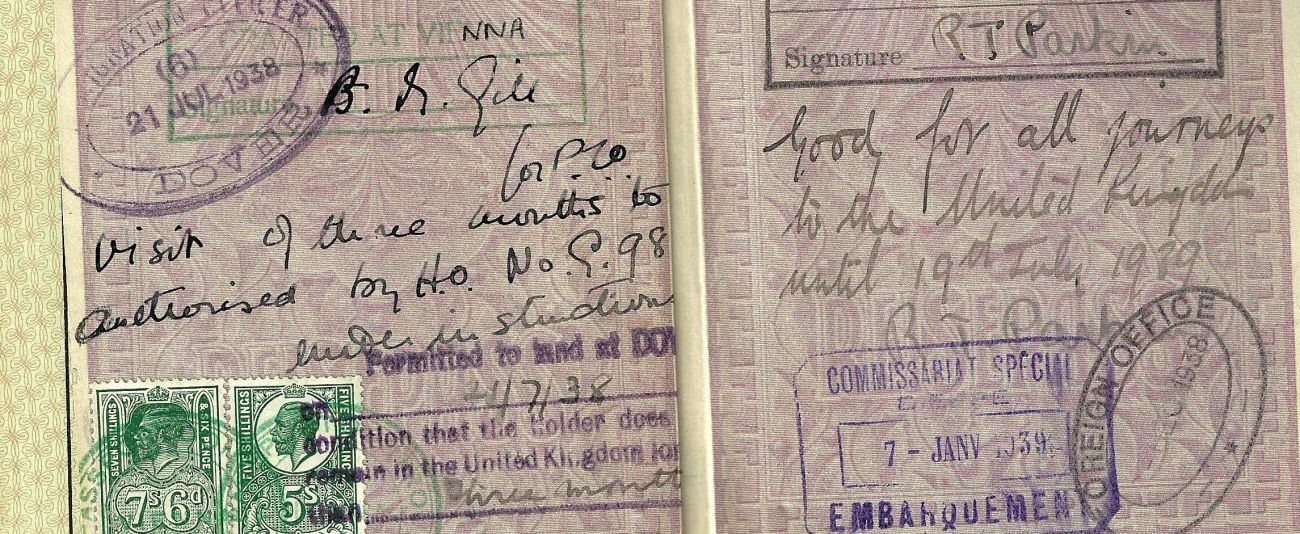 IMMIGRATION OFFICER
(6)
21 JUL 1938
DOVER
GRANTED AT VIENNA
Signature
for P.C.O.
Visit of three months to
authorised by H.O. No. G. 98
under instructions
Permitted to land at DOV
21/7/38
on
condition that the holder does
remain in the United Kingdom for
than three month
SEVEN SHILLINGS
& SIX PENCE
7s 6d
FIVE SHILLINGS
FIVE SHILLINGS
5s
Signature R J Parkin
Good for all journeys
to the United Kingdom
until 19th July, 1939
R J Park
FOREIGN OFFICE
1938
COMMISSARIAT SPECIAL
7 - JANV 1939
EMBARQUEMENT